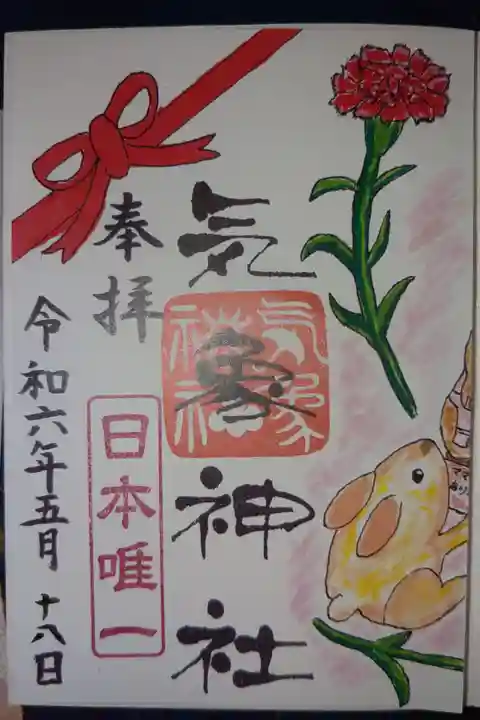 気象神社
気象神社
奉拝
日本唯一
令和六年五月十八日
ママ